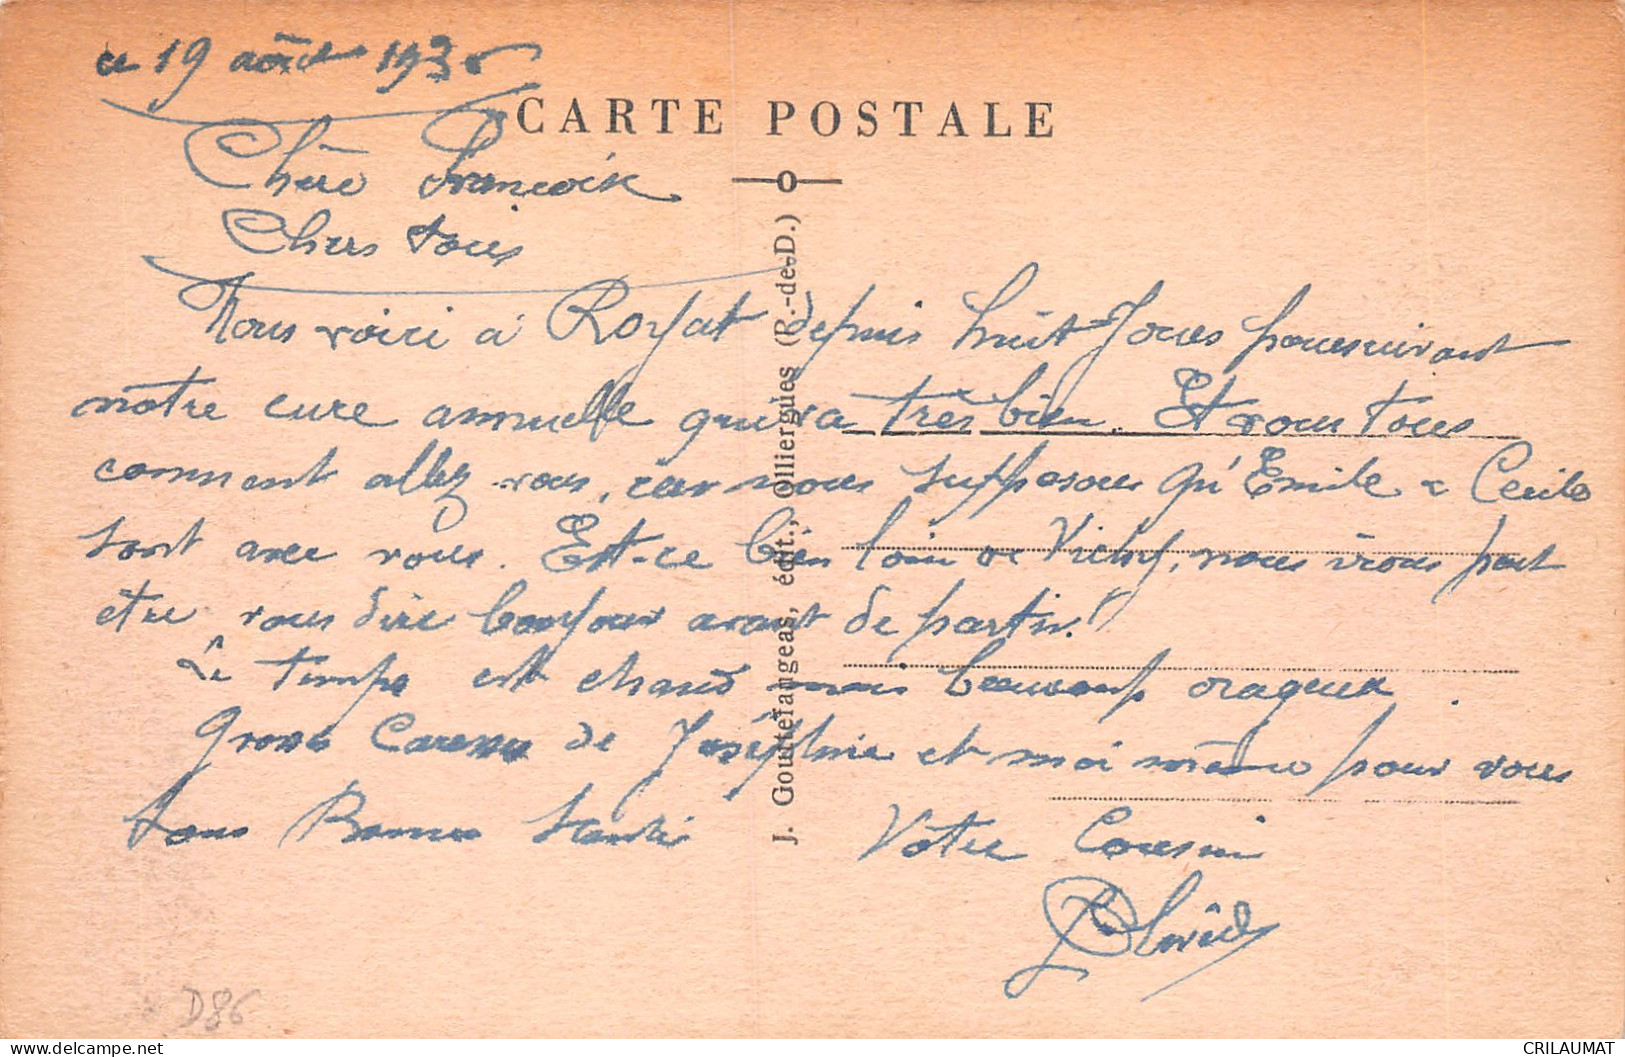 ce 19 août 1936
CARTE POSTALE
Chère
Chers tous
Nous voici à Royat depuis huit Jours poursuivant
notre cure annuelle qui va très bien. Et vous tous
comment allez vous, car nous supposons qu'Emile & Cecile
sont avec vous. Est-ce bien loin de Vichy, nous irons peut
être vous dire bonjour avant de partir!
Le temps est chaud mais beaucoup orageux.
Gross Caresses de Joséphine et moi même pour vous
tous Bonne Santé
Votre Cousin
J. Gouttefangeas, édit., Olliergues (P.-de-D.)
D86
CRILAUMAT